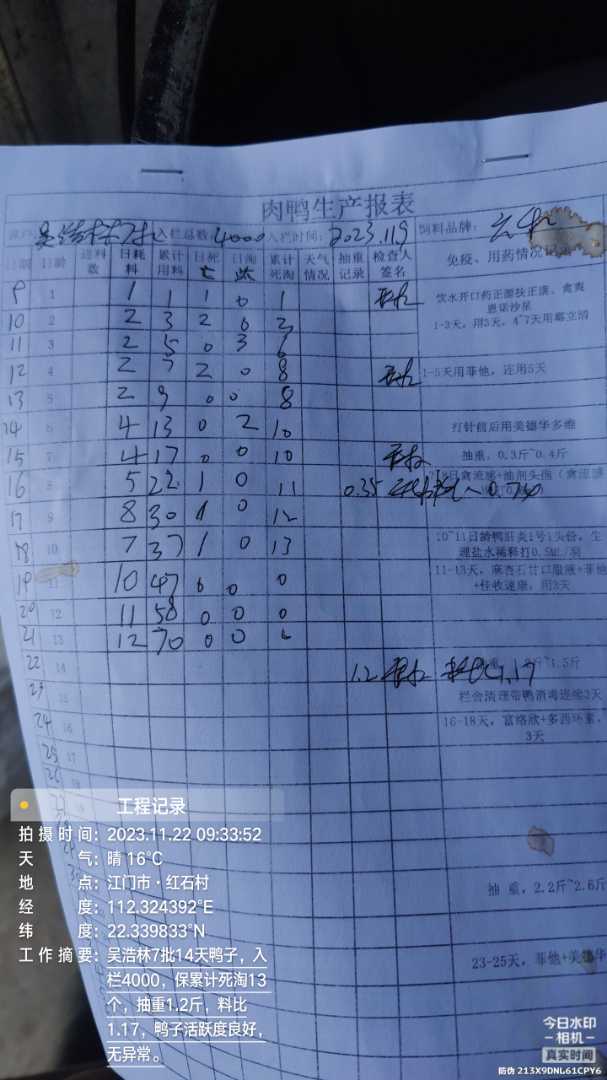 肉鸭生产报表
吴浩林7批 入栏总数:4000 入栏时间:2023.11.9 饲料品牌:
日期 日龄 进料数 日耗料 累计用料 日死亡 日淘汰 累计死淘 天气情况 抽重记录 检查人签名 免疫、用药情况记录
9 1 1 1 1 0 1 饮水开口药正源扶正康、禽爽
恩诺沙星
10 2 2 3 2 0 3 1-3天,用3天,4~7天用
11 3 2 5 0 3 6
12 4 2 7 2 0 8 1-5天用菲他,连用5天
13 5 2 9 0 0 8
14 6 4 13 0 2 10 打针前后用美德华多维
15 7 4 17 0 0 10 抽重,0.3斤~0.4斤
16 8 5 22 1 0 11 0.35
17 9 8 30 1 0 12
18 10 7 37 1 0 13 10~11日龄鸭肝炎1号1头份,生
理盐水稀释打0.5ML/羽
19 11 10 47 0 0 0 11-13天,麻杏石甘口服液+菲他
+住收速康,用3天
20 12 11 58 0 0 0
21 13 12 70 0 0
22 14 1.2 1.17
23 15 栏舍清理带鸭消毒连续3天
24 16 16-18天,富络欣+多西环素,
3天
25 17
26
抽重,2.2斤~2.6斤
23-25天,菲他+美德华
工程记录
拍摄时间:2023.11.22 09:33:52
天气:晴 16℃
地点:江门市·红石村
经度:112.324392°E
纬度:22.339833°N
工作摘要:吴浩林7批14天鸭子,入
栏4000,保累计死淘13
个,抽重1.2斤,料比
1.17,鸭子活跃度良好,
无异常。
今日水印
-相机-
真实时间
防伪 213X9DNL61CPY6